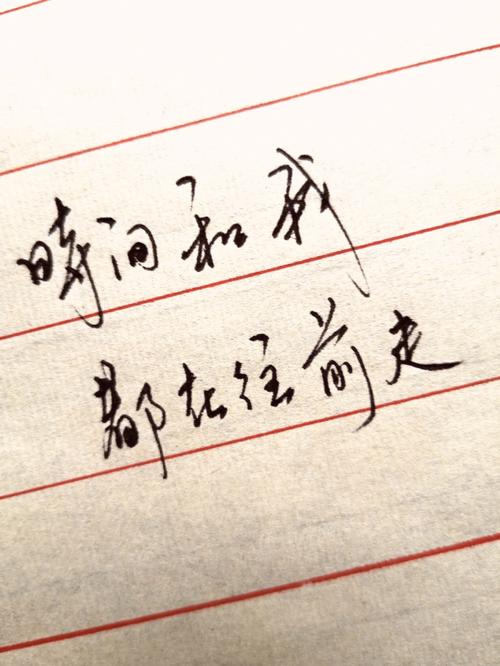 時间和我
都在往前走